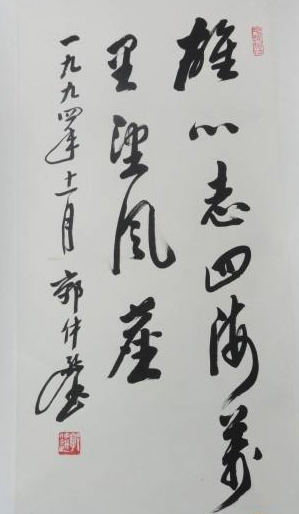 雄心志四海萬
里望風塵
一九九四年十一月 郭仲選